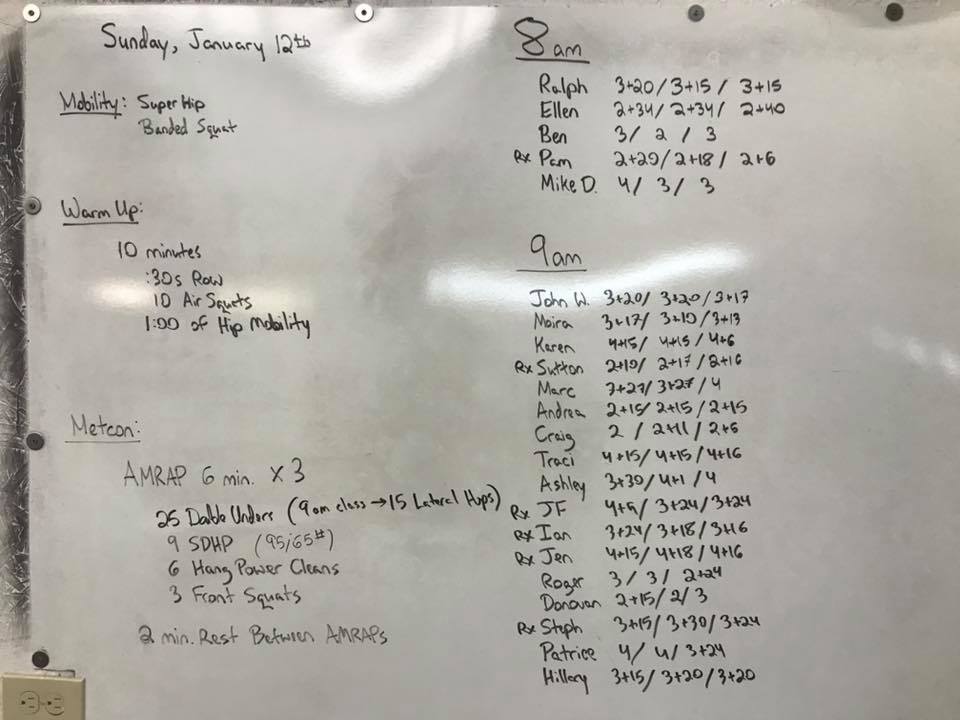 Sunday, January 12th
Mobility: Super Hip
Banded Squat
Warm Up:
10 minutes
:30s Row
10 Air Squats
1:00 of Hip Mobility
Metcon:
AMRAP 6 min. x 3
25 Double Unders (9am class → 15 Lateral Hops)
9 SDHP (95/65#)
6 Hang Power Cleans
3 Front Squats
2 min. Rest Between AMRAPs
8am
Ralph 3+20 / 3+15 / 3+15
Ellen 2+34 / 2+34 / 2+40
Ben 3 / 2 / 3
Rx Pam 2+29 / 2+18 / 2+6
Mike D. 4 / 3 / 3
9am
John W. 3+20 / 3+20 / 3+17
Moira 3+17 / 3+19 / 3+13
Karen 4+15 / 4+15 / 4+6
Rx Sutton 2+19 / 2+17 / 2+16
Marc 3+27 / 3+27 / 4
Andrea 2+15 / 2+15 / 2+15
Craig 2 / 2+11 / 2+6
Traci 4+15 / 4+15 / 4+16
Ashley 3+30 / 4+1 / 4
Rx JF 4+9 / 3+24 / 3+24
Rx Ian 3+24 / 3+18 / 3+16
Rx Jen 4+15 / 4+18 / 4+16
Roger 3 / 3 / 2+24
Donovan 2+15 / 2 / 3
Rx Steph 3+15 / 3+30 / 3+24
Patrice 4 / 4 / 3+24
Hillary 3+15 / 3+20 / 3+20